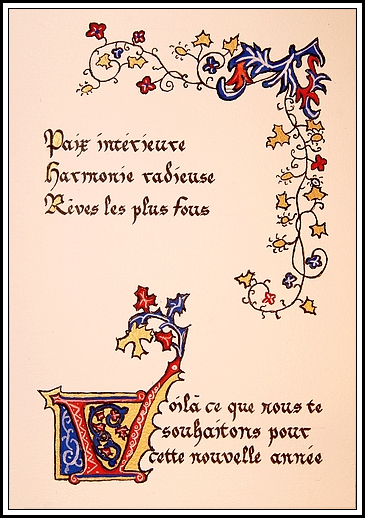 Paix intérieure
Harmonie radieuse
Rêves les plus fous
Voilà ce que nous te
souhaitons pour
cette nouvelle année